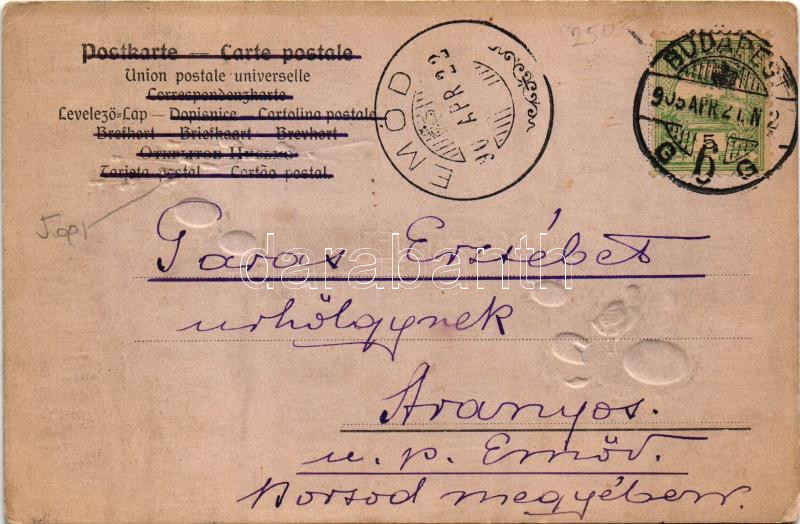 Postkarte — Carte postale
Union postale universelle
Correspondenzkarte
Levelező-Lap — Dopisnice — Cartolina postale
Brefkort — Briefkaart — Brevkort
Tarjeta postal — Cartão postal.
250
EMŐD
APR 22
BUDAPEST
905 APR 21. N
5
G D G
Erzsébet
darabanth
úrhölgynek
Aranyos.
u. p. Emőd.
Borsod megyében.